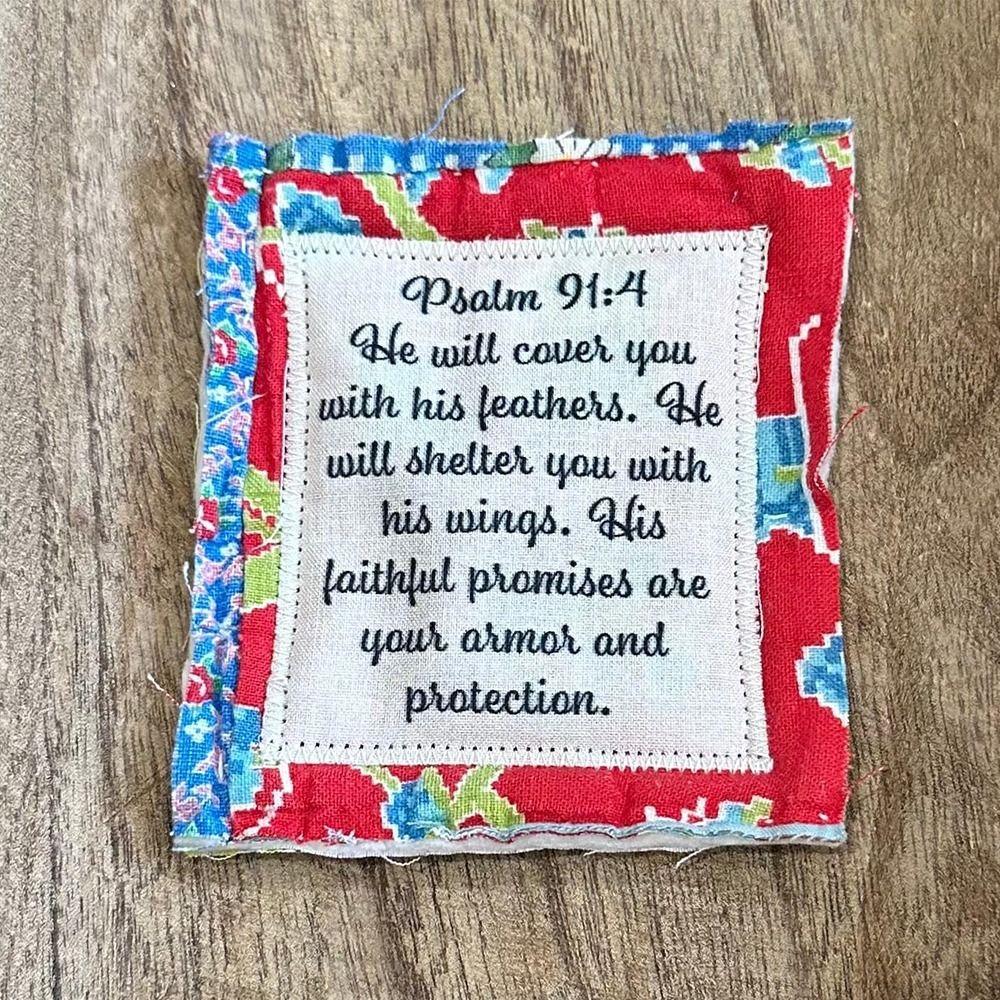 Psalm 91:4
He will cover you
with his feathers. He
will shelter you with
his wings. His
faithful promises are
your armor and
protection.